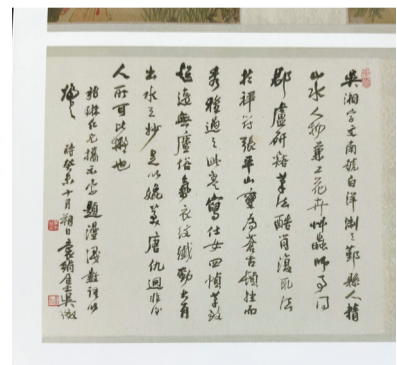 吳湘字文南號白洋浙之鄞縣人精
山水人物兼工花卉艸蟲師事同
郡盧研精筆法酷肖復取法
於張平山蒼古頓挫而
秀雅過之此卷寫仕女四幀筆致
超逸無塵俗氣衣紋纖勁大有
出水之妙足以媲美唐仇迥非今
人所可比擬也
仁兄攜示索題漫識數語以
歸之 時癸未十月朔日吳徵